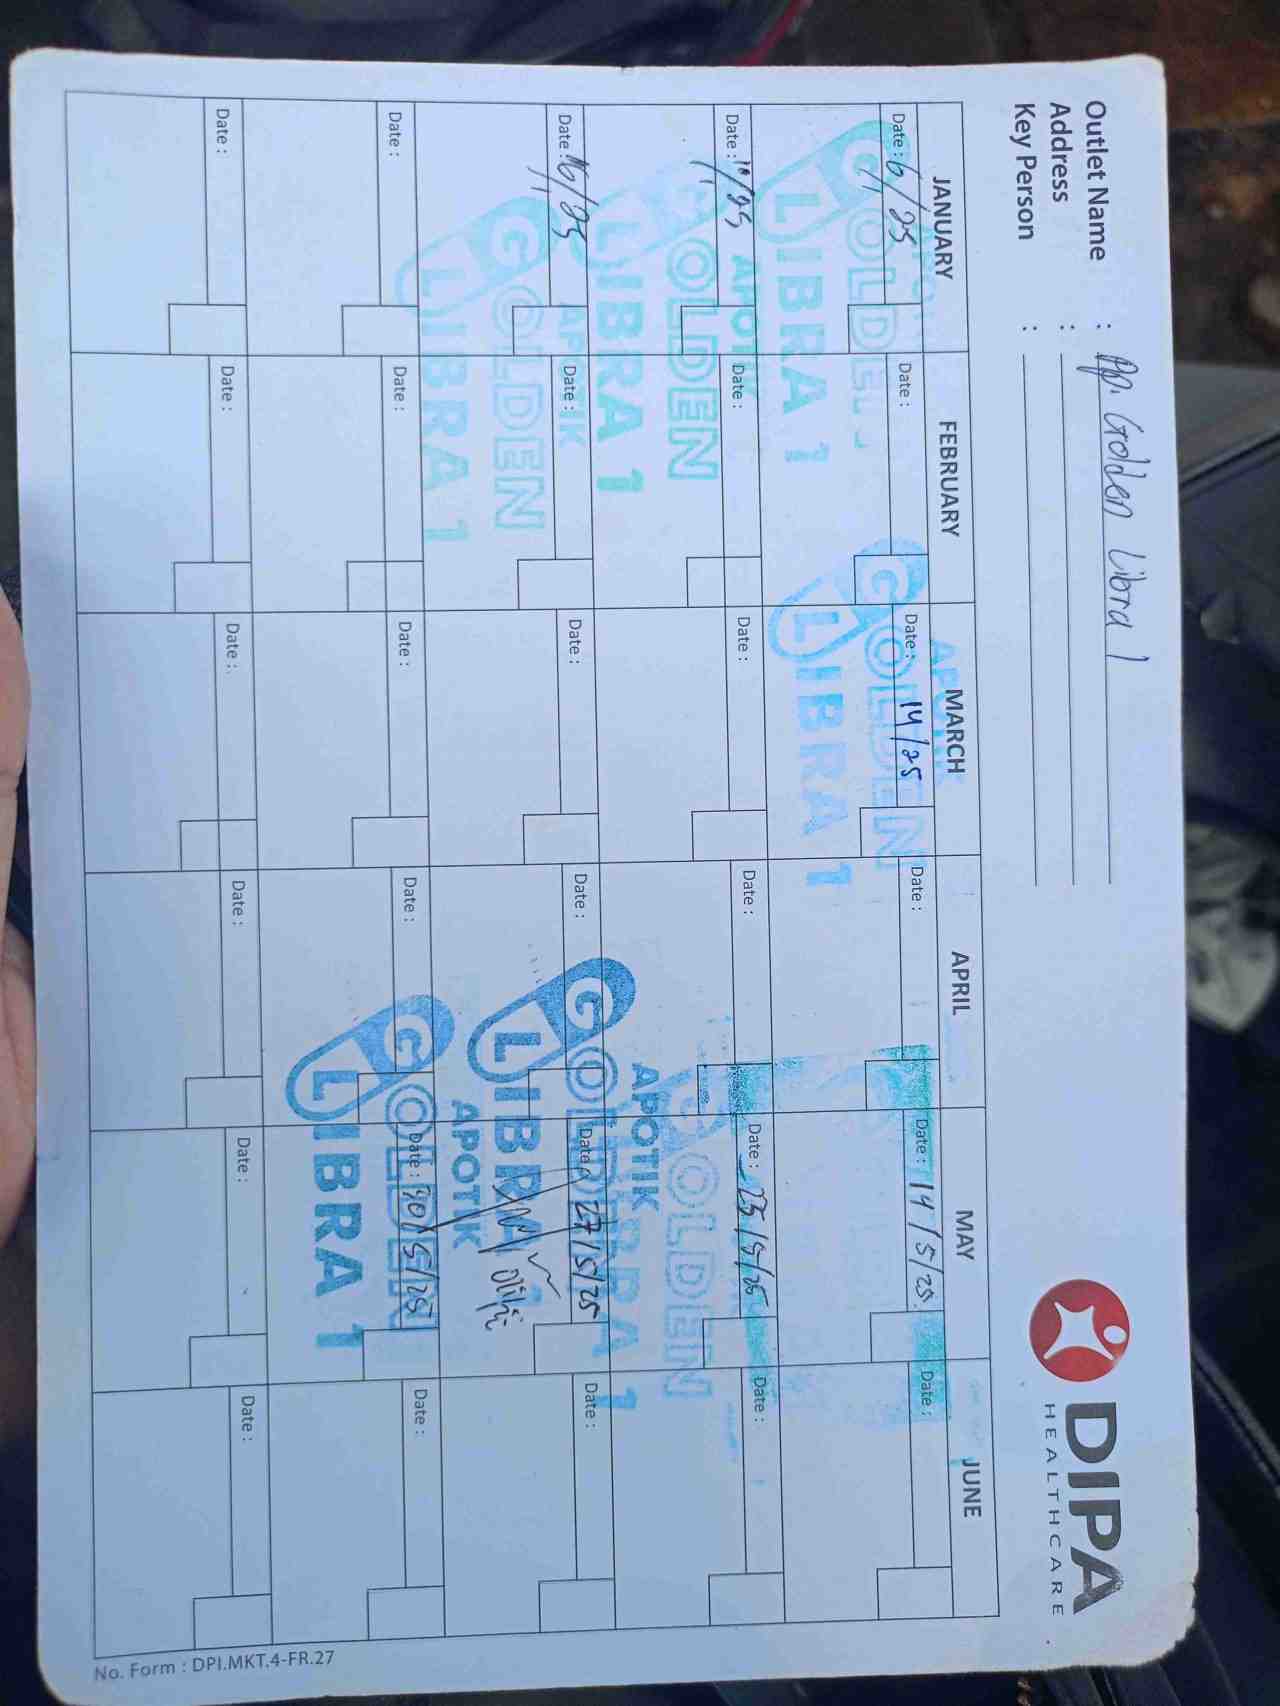 DIPA
HEALTHCARE
Outlet Name : Ap. Golden Libra 1
Address :
Key Person :
JANUARY FEBRUARY MARCH APRIL MAY JUNE
Date : 6/25 Date : Date : 14/25 Date : Date : 14/5/25 Date :
GOLDEN
LIBRA 1
APOTIK
GOLDEN
LIBRA 1
Date : Date : Date : Date : Date : 23/5/25 Date :
APOTIK
GOLDEN
LIBRA 1
GOLDEN
LIBRA 1
Date : 16/25 Date : Date : Date : Date : 27/5/25 Date :
APOTIK
GOLDEN
LIBRA 1
APOTIK
GOLDEN
LIBRA 1
Date : Date : Date : Date : Date : 30/5/25 Date :
APOTIK
GOLDEN
LIBRA 1
Date : Date : Date : Date : Date : Date :
No. Form : DPI.MKT.4-FR.27